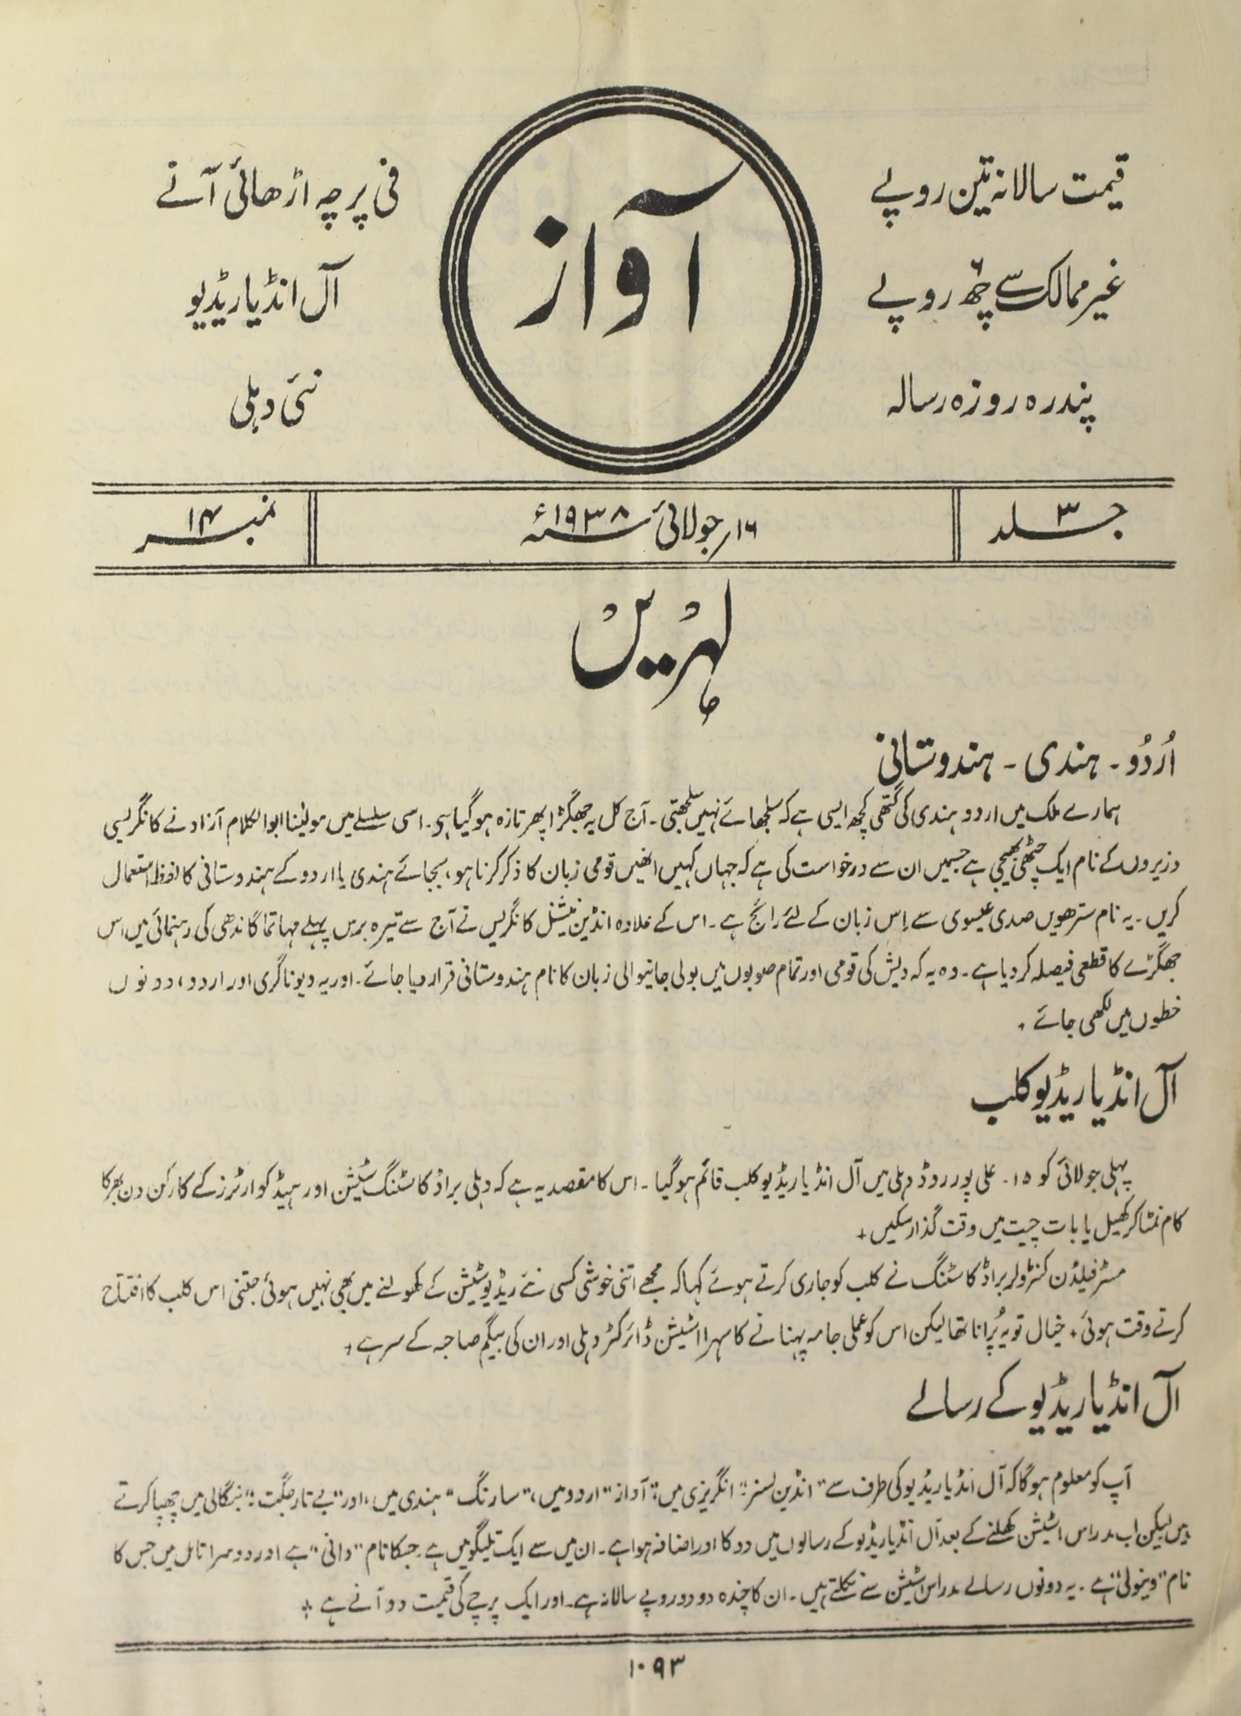 قیمت سالانہ تین روپے
غیر ممالک سے چھ روپے
پندرہ روزہ رسالہ
آواز
فی پرچہ اڑھائی آنے
آل انڈیا ریڈیو
نئی دہلی
جلد ۳
۱۶ر جولائی ۱۹۳۸ء
نمبر ۱۴
لہریں
اُردُو - ہندی - ہندوستانی
ہمارے ملک میں اردو ہندی کی گتھی کچھ ایسی ہے کہ سلجھائے نہیں سلجھتی۔ آج کل یہ جھگڑا پھر تازہ ہوگیا ہی۔ اسی سلسلے میں مولینا ابوالکلام آزاد نے کانگریسی
وزیروں کے نام ایک چٹھی بھیجی ہے جسمیں ان سے درخواست کی ہے کہ جہاں کہیں انھیں قومی زبان کا ذکر کرنا ہو، بجائے ہندی یا اردو کے ہندوستانی کا لفظ استعمال
کریں۔ یہ نام سترھویں صدی عیسوی سے اِس زبان کے لئے رائج ہے۔ اس کے علاوہ انڈین نیشنل کانگریس نے آج سے تیرہ برس پہلے مہاتما گاندھی کی رہنمائی میں اس
جھگڑے کا قطعی فیصلہ کر دیا ہے۔ وہ یہ کہ دیش کی قومی اور تمام صوبوں میں بولی جانیوالی زبان کا نام ہندوستانی قرار دیا جائے۔ اور یہ دیوناگری اور اردو، دونوں
خطوں میں لکھی جائے +
آل انڈیا ریڈیو کلب
پہلی جولائی کو ۱۵۔ علی پور روڈ دہلی میں آل انڈیا ریڈیو کلب قائم ہوگیا۔ اس کا مقصد یہ ہے کہ دہلی براڈ کاسٹنگ سٹیشن اور ہیڈ کوارٹرز کے کارکن دن بھر کا
کام نمٹا کر کھیل یا بات چیت میں وقت گذار سکیں +
مسٹر فیلڈن کنٹرولر براڈ کاسٹنگ نے کلب کو جاری کرتے ہوئے کہا کہ مجھے اتنی خوشی کسی نئے ریڈیو سٹیشن کے کھولنے میں بھی نہیں ہوئی جتنی اس کلب کا افتتاح
کرتے وقت ہوئی + خیال تو یہ پُرانا تھا لیکن اس کو عملی جامہ پہنانے کا سہرا اسٹیشن ڈائرکٹر دہلی اور ان کی بیگم صاحبہ کے سر ہے +
آل انڈیا ریڈیو کے رسالے
آپ کو معلوم ہوگا کہ آل انڈیا ریڈیو کی طرف سے "انڈین لسنر" انگریزی میں، "آواز" اردو میں، "سارنگ" ہندی میں، اور "بے تار جگت" بنگالی میں چھپا کرتے
ہیں لیکن اب مدراس اسٹیشن کھلنے کے بعد آل انڈیا ریڈیو کے رسالوں میں دو کا اور اضافہ ہوا ہے۔ ان میں سے ایک تیلیگو میں ہے جسکا نام "وانی" ہے اور دوسرا تامل میں جس کا
نام "وینولی" ہے۔ یہ دونوں رسالے مدراس اسٹیشن سے نکلتے ہیں۔ ان کا چندہ دو دو روپے سالانہ ہے۔ اور ایک پرچے کی قیمت دو آنے ہے +
۱۰۹۳